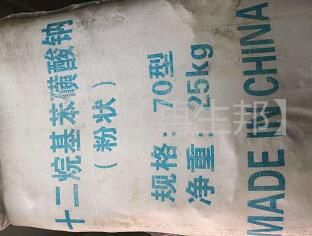 十二烷基苯磺酸钠
（粉状）
规格：70型
净重：25kg
MADE IN CHINA